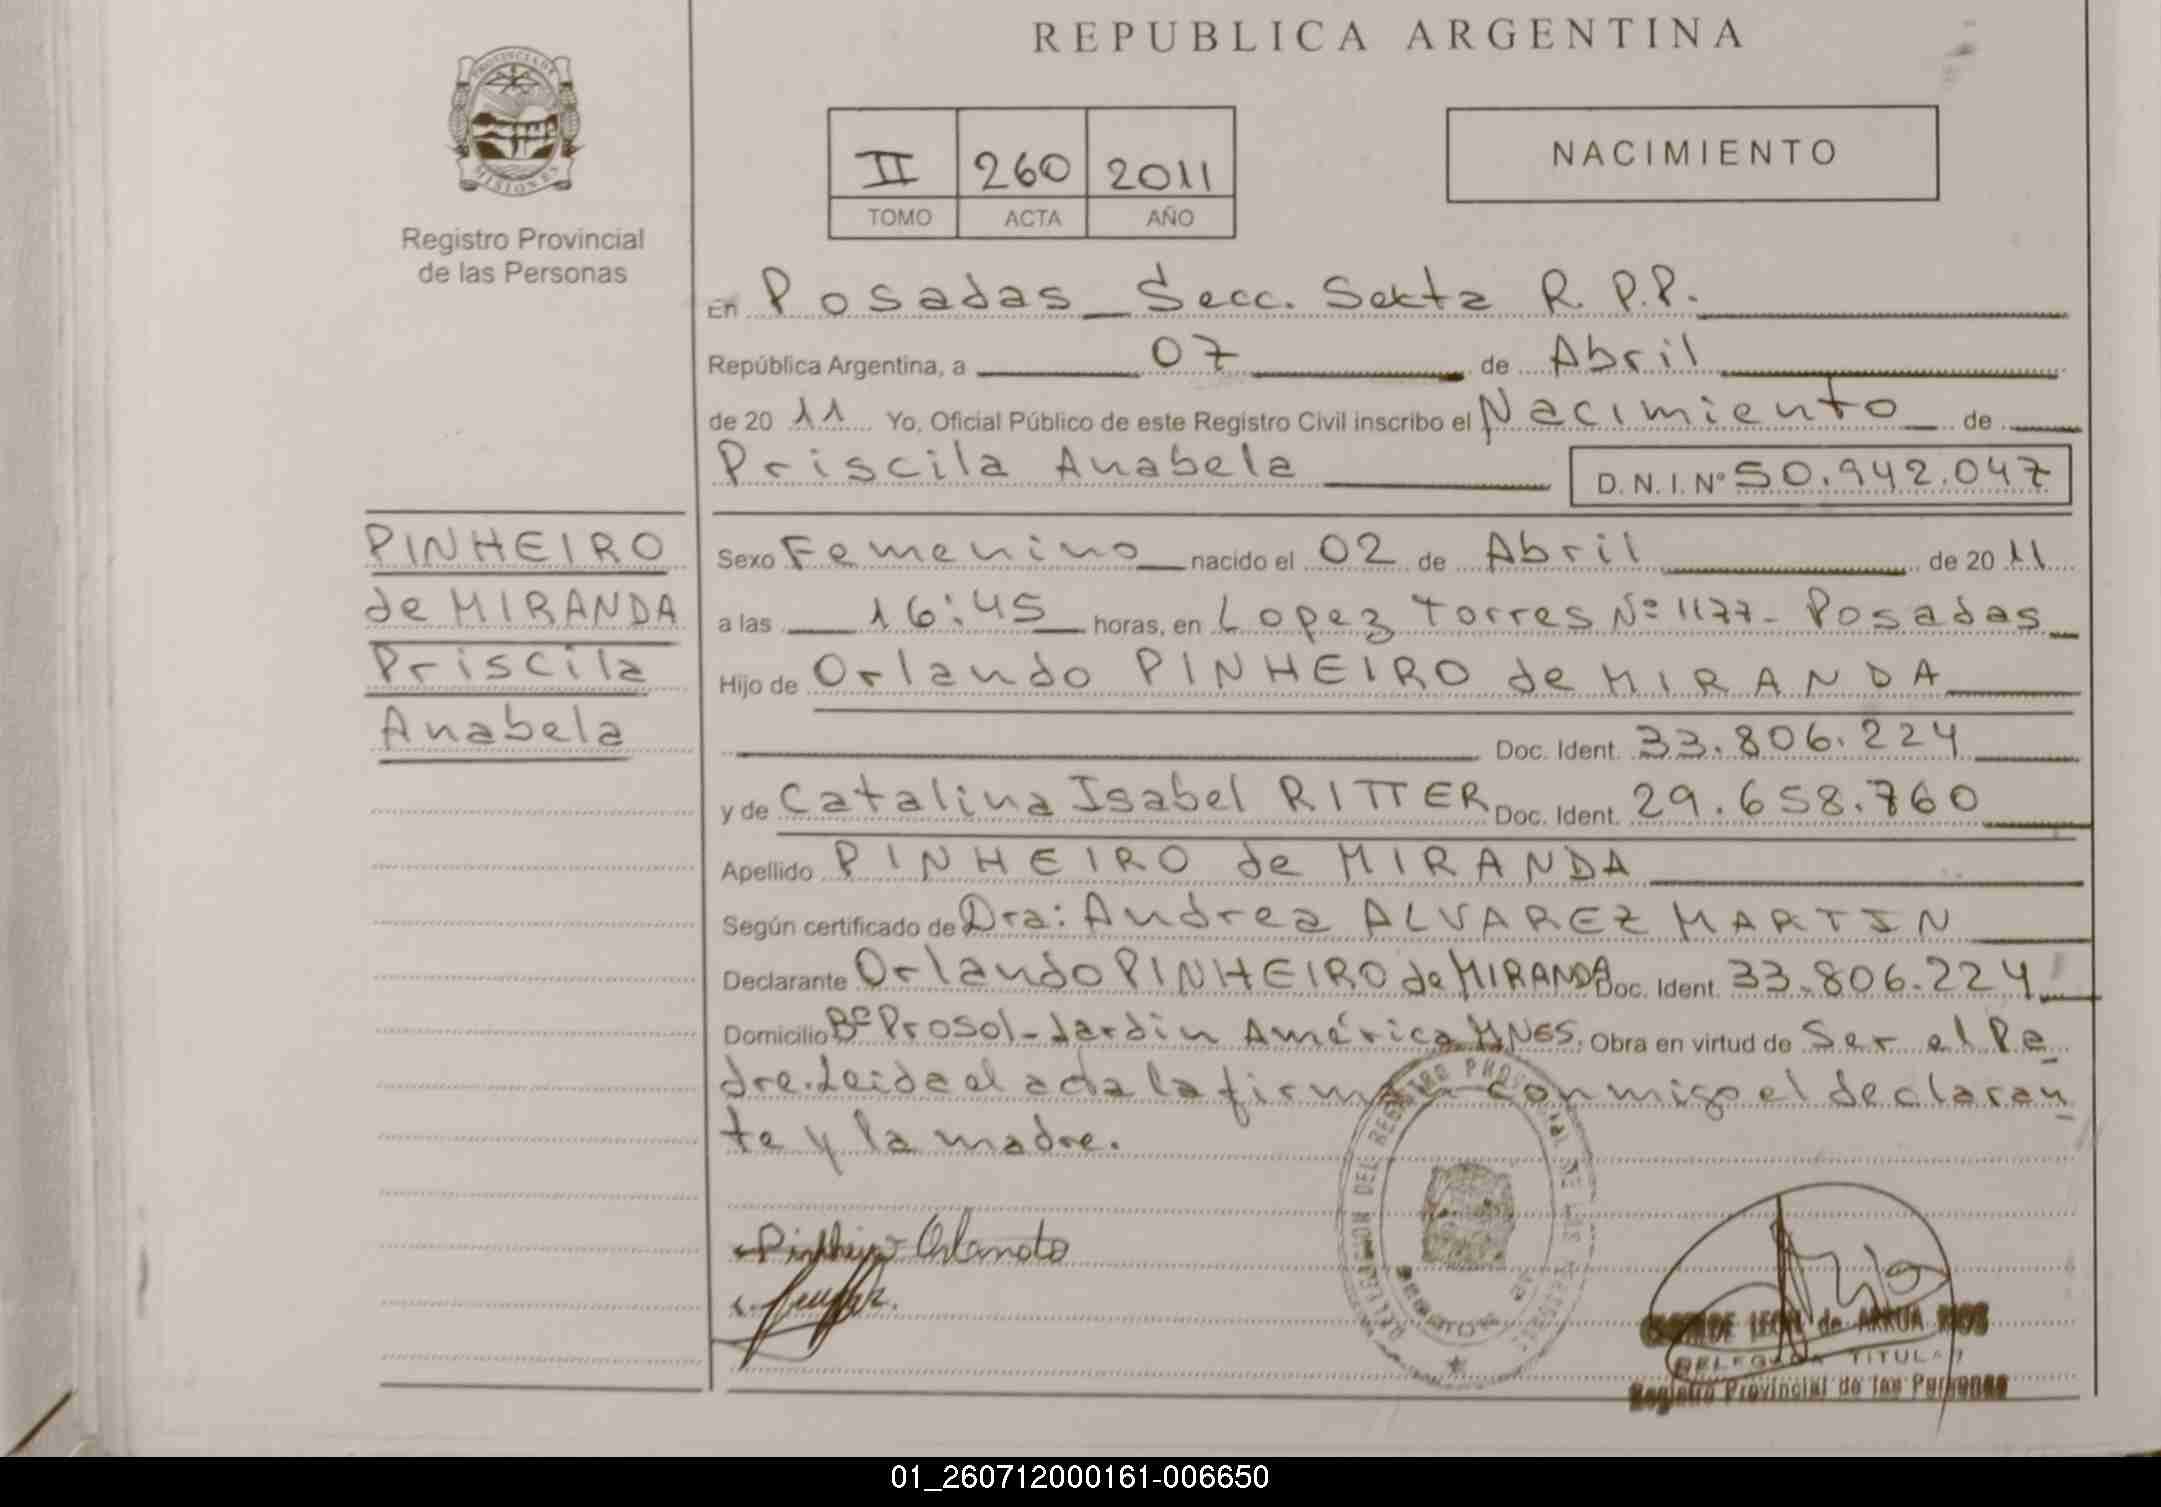 REPUBLICA ARGENTINA
PROVINCIA DE MISIONES
Registro Provincial
de las Personas
II 260 2011
TOMO ACTA AÑO
NACIMIENTO
En Posadas _ Secc. Sexta R. P.P.
República Argentina, a 07 de Abril
de 20 11 Yo, Oficial Público de este Registro Civil inscribo el Nacimiento de
Priscila Anabela D. N. I. Nº 50.942.047
PINHEIRO
de MIRANDA
Priscila
Anabela
Sexo Femenino nacido el 02 de Abril de 20 11
a las 16:45 horas, en Lopez Torres Nº 1177 - Posadas
Hijo de Orlando PINHEIRO de MIRANDA
Doc. Ident. 33.806.224
y de Catalina Isabel RITTER Doc. Ident. 29.658.760
Apellido PINHEIRO de MIRANDA
Según certificado de Dra: Andrea ALVAREZ MARTIN
Declarante Orlando PINHEIRO de MIRANDA Doc. Ident. 33.806.224
Domicilio Bº Prosol - Jardin América MNES. Obra en virtud de Ser el Pa
dre. Leida el acta la firma conmigo el declaran
te y la madre.
Pinheiro Orlando
DELEGACION DEL REGISTRO PROVINCIAL DE LAS PERSONAS
de ARRUA RIOS
DELEGADA TITULAR
Registro Provincial de las Personas
01_260712000161-006650